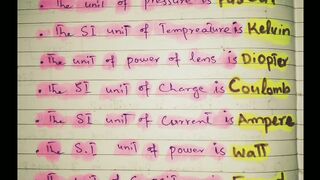 . The unit of pressure is Pascal
. The SI unit of Tempreature is Kelvin
. The unit of power of lens is Diopter
. The SI unit of Charge is Coulomb
. The SI unit of Current is Ampere
. The S.I unit of power is Watt
. The unit of is